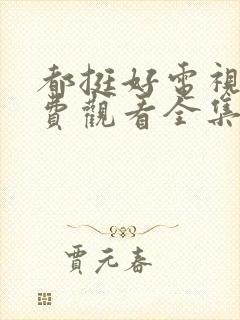 都挺好電視
費觀看全集
賈元春